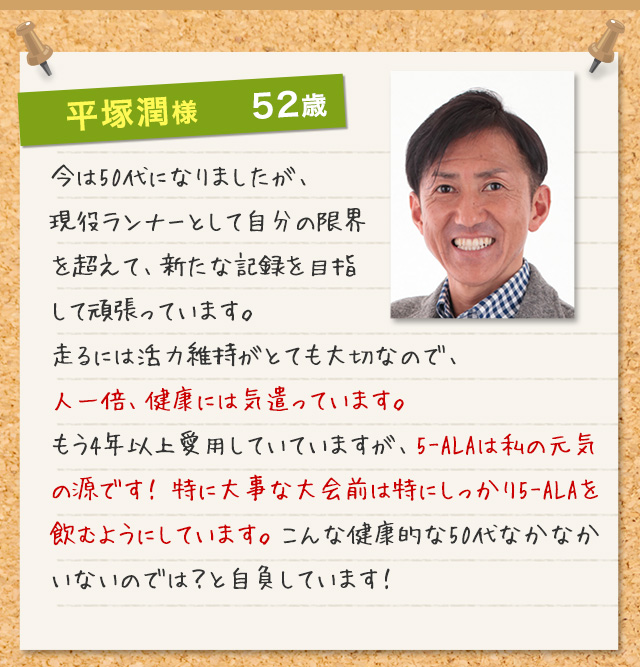 平塚潤様 52歳
今は50代になりましたが、
現役ランナーとして自分の限界
を超えて、新たな記録を目指
して頑張っています。
走るには活力維持がとても大切なので、
人一倍、健康には気遣っています。
もう4年以上愛用していていますが、5-ALAは私の元気
の源です! 特に大事な大会前は特にしっかり5-ALAを
飲むようにしています。こんな健康的な50代なかなか
いないのでは?と自負しています!